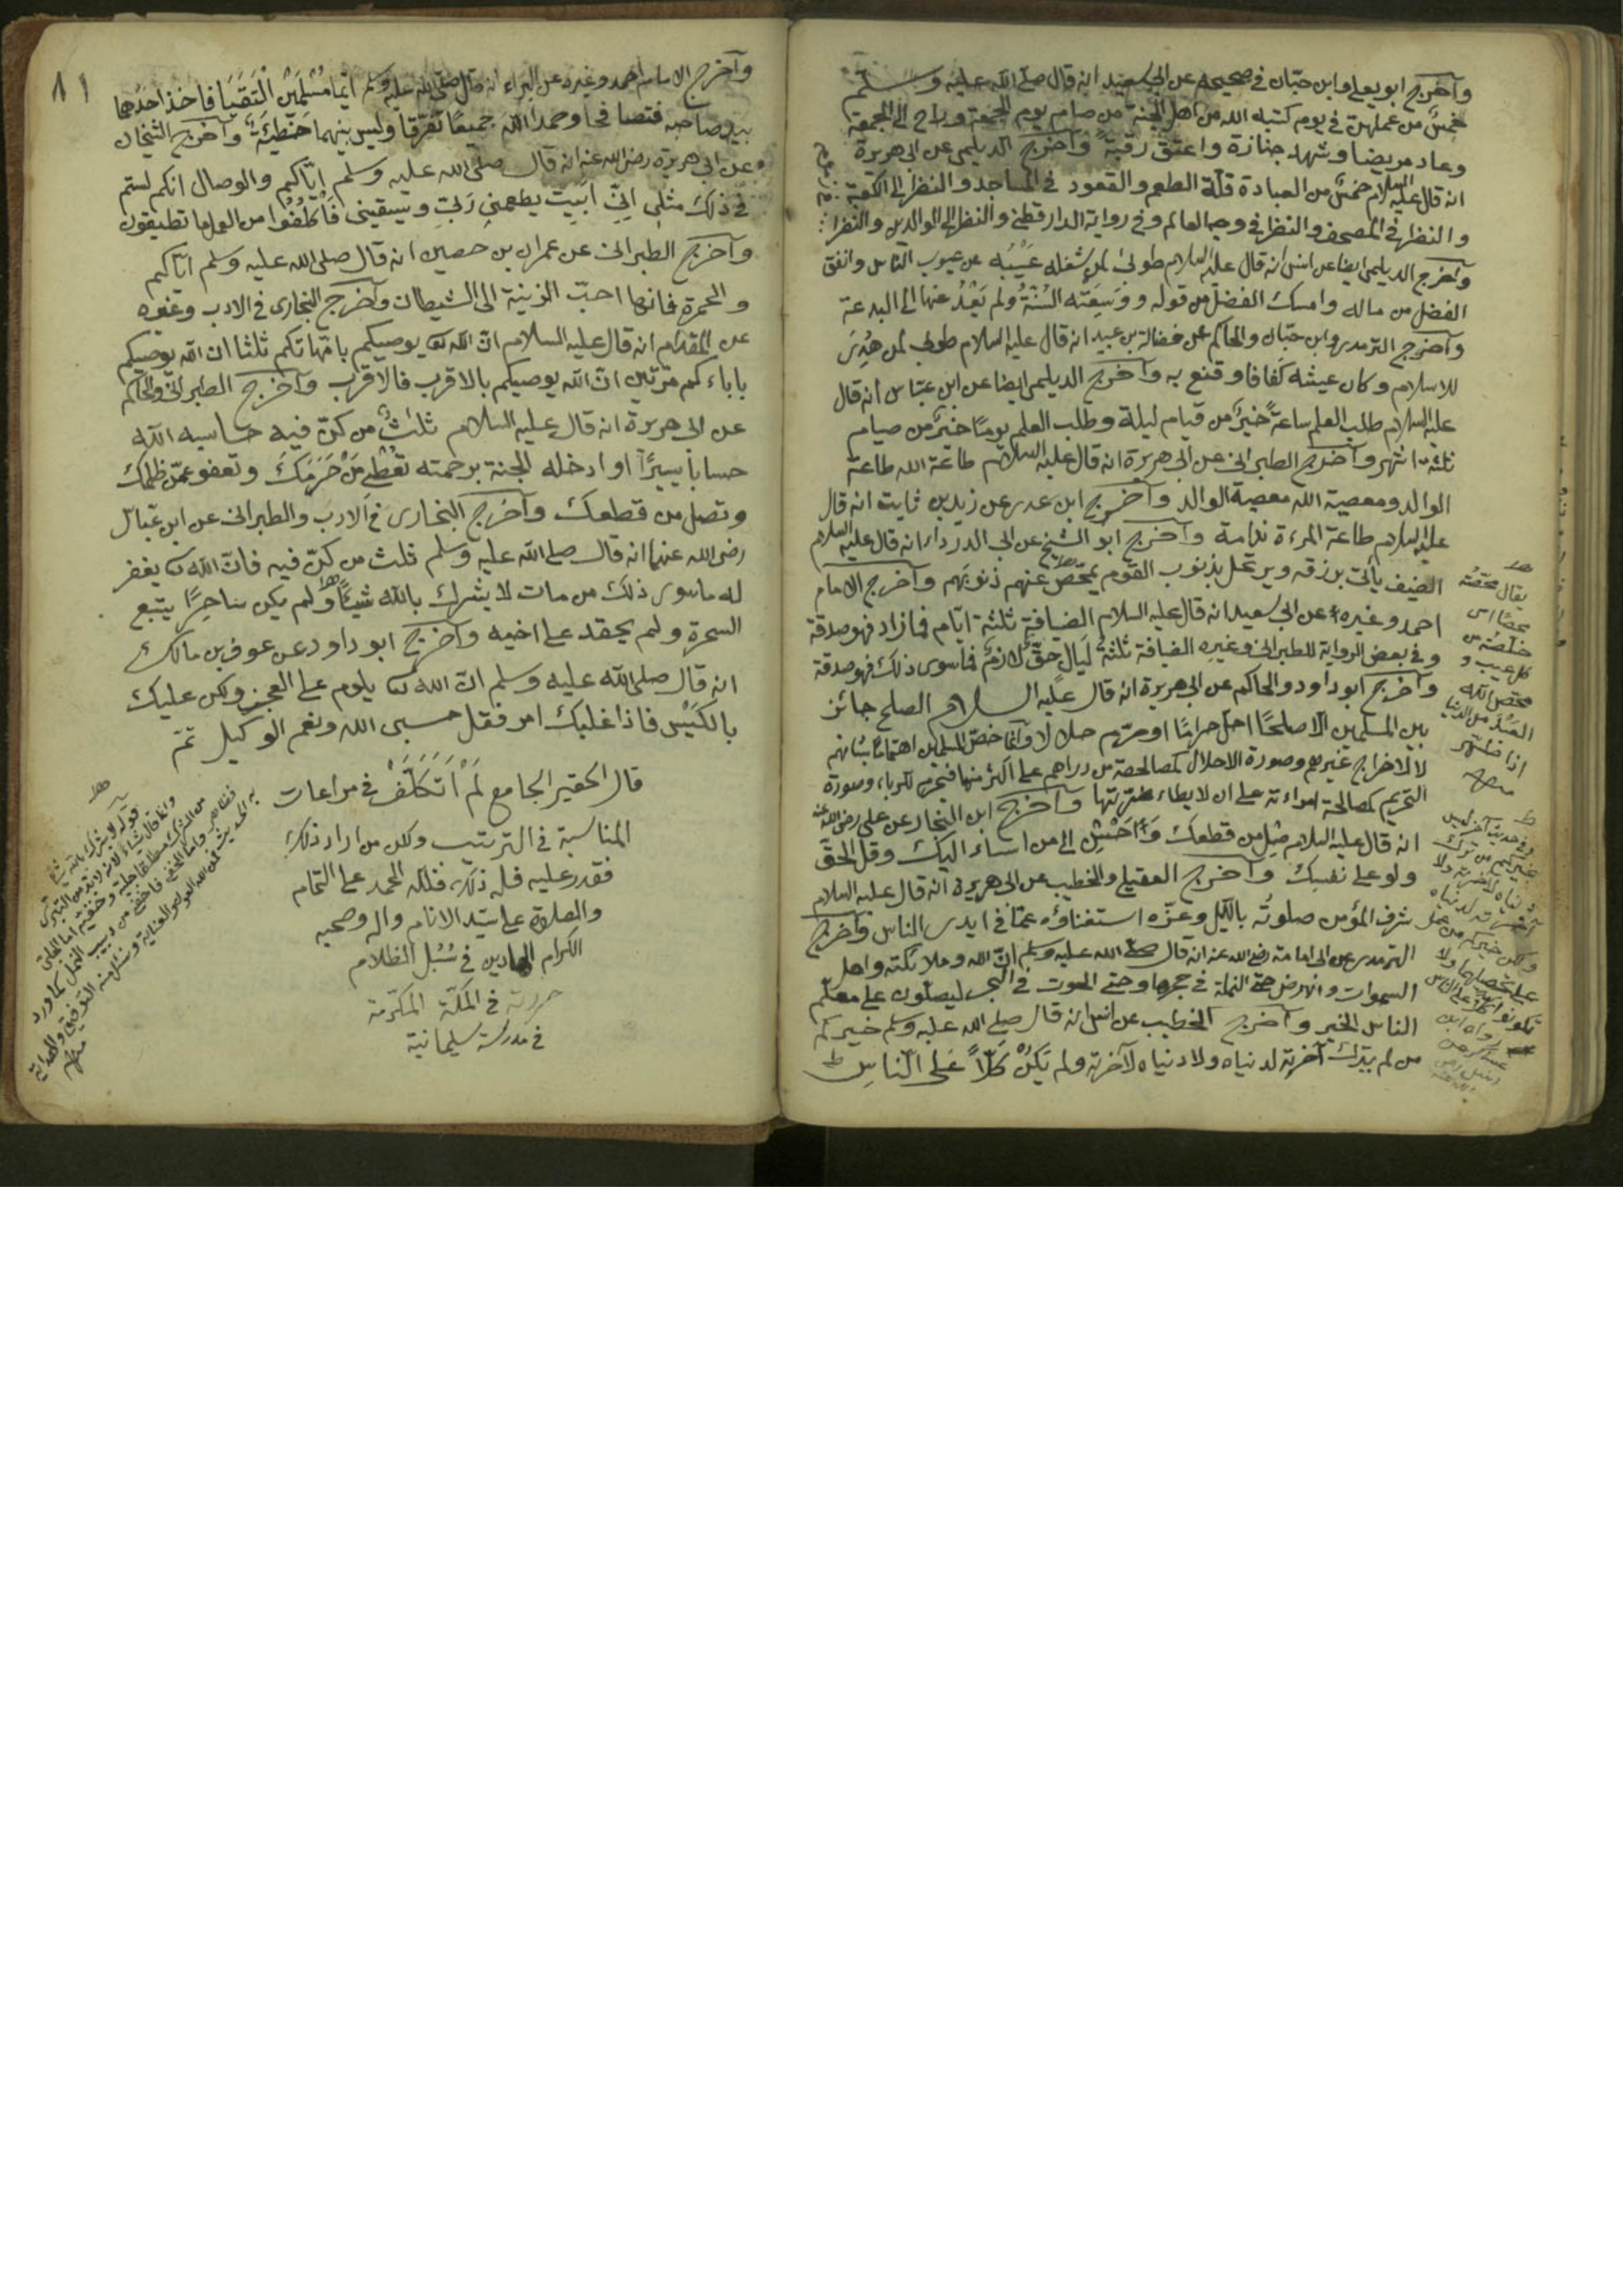 وأخرج ابو يعلى وابن حبّان في صحيحه عن ابى سعيد انه قال صلى الله عليه وسلم
خمسٌ من عملهنّ في يوم كتبه الله من اهل الجنة من صام يوم الجمعة وراح الى الجمعة
وعاد مريضا وشهد جنازة واعتق رقبة وأخرج الديلمى عن ابى هريرة
انه قال عليه السلام خمسٌ من العبادة قلّة الطعم والقعود في المساجد والنظر الى الكعبة
والنظر في المصحف والنظر في وجه العالم وفي رواية الدارقطنى والنظر الى الوالدين والنظر
وأخرج الديلمى ايضا عن انس انه قال عليه السلام طوبى لمن شغله عَيْبُه عن عيوب الناس وانفق
الفضل من ماله وامسك الفضل من قوله ووَسِعَتْه السُنّةُ ولم يَعْدُ عنها الى البدعة
وأخرج الترمذى وابن حبّان والحاكم عن فضالة بن عبيد انه قال عليه السلام طوبى لمن هُدِىَ
للاسلام وكان عيشه كَفافا وقنع به وأخرج الديلمى ايضا عن ابن عبّاس انه قال
عليه السلام طلب العلم ساعةً خيرٌ من قيام ليلة وطلب العلم يومًا خيرٌ من صيام
ثلثة اشهر وأخرج الطبرانى عن ابى هريرة انه قال عليه السلام طاعة الله طاعة
الوالد ومعصية الله معصية الوالد وأخرج ابن عدى عن زيد بن ثابت انه قال
عليه السلام طاعة المرءة ندامة وأخرج ابو الشيخ عن ابى الدرداء انه قال عليه السلام
الضيف يأتى برزقه ويرتحل بذنوب القوم يمحّص عنهم ذنوبَهم وأخرج الامام
احمد وغيره عن ابى سعيد انه قال عليه السلام الضيافة ثلثة ايّام فما زاد فهو صدقة
وفي بعض الرواية للطبرانى وغيره الضيافة ثلثةُ لَيَالٍ حقٌّ لازمٌ فما سوى ذلك فهو صدقة
وأخرج ابو داود والحاكم عن ابى هريرة انه قال عليه السلام الصلح جائز
بين المسلمين الّا صلحًا احلّ حرامًا او حرّم حلالا وانّما خصّ المسلمين اهتمامًا بشانهم
لا لاخراج غيرهم وصورة الاحلال كمصالحة من دراهم على اكثر منها فتحرم للربا، وصورة
التحريم كمصالحة امراءته على ان لا يطاء ضرّتها وأخرج ابن النجار عن على رضى الله عنه
انه قال عليه السلام صِلْ من قطعك وَأَحْسِنْ الى من اساء اليك وقل الحقّ
ولو على نفسك وأخرج العقيلى والخطيب عن ابى هريرة انه قال عليه السلام
شرف المؤمن صلوتُه بالليل وعزّه استغناؤه عمّا في ايدى الناس وأخرج
الترمذى عن ابى امامة رضى الله عنه انه قال صلى الله عليه وسلم انّ الله وملائكته واهل
السموات والارض حتى النملة في جحرها وحتى الحوت في البحر ليصلّون على معلّم
الناس الخير وأخرج الخطيب عن انس انه قال صلى الله عليه وسلم خيركم
من لم يترك آخرته لدنياه ولا دنياه لآخرته ولم يَكُنْ كَلًّا عَلَى الناسِ
يقال محّصته
محصًا اى
خلّصته من
كل عيب و
محّص الله
العبد من الذنوب
اذا طهّر
وفي حديث آخر ليس
خيركم من ترك
دنياه لآخرته ولا
آخرته لدنياه
١١
وأخرج الامام احمد وغيره عن البراء انه قال صلى الله عليه وسلم ايّما مُسْلِمَيْنِ الْتَقَيَا فاخذ احدُهما
بيد صاحبه فتصافحا وحمدا الله جميعًا تفرّقا وليس بينهما خطيئةٌ وأخرج الشيخان
عن ابى هريرة رضى الله عنه انه قال صلى الله عليه وسلم ايّاكم والوصال انكم لستم
في ذلك مثلى انّى ابيت يطعمنى ربّى ويسقينى فاكْلَفُوا من العمل ما تطيقون
وأخرج الطبرانى عن عمران بن حصين انه قال صلى الله عليه وسلم ايّاكم
والحمرة فانها احبّ الزينة الى الشيطان وأخرج البخارى في الادب وغيره
عن المقدام انه قال عليه السلام انّ الله يوصيكم بامّهاتكم ثلثا انّ الله يوصيكم
باباءكم مرّتين انّ الله يوصيكم بالاقرب فالاقرب وأخرج الطبرانى والحاكم
عن ابى هريرة انه قال عليه السلام ثلثٌ من كنّ فيه حاسبه الله
حسابا يسيرًا او ادخله الجنة برحمته تعطى مَنْ حَرَمَكَ وتعفو عمّن ظلمك
وتصل من قطعك وأخرج البخارى في الادب والطبرانى عن ابن عباس
رضى الله عنهما انه قال صلى الله عليه وسلم ثلث من لم يكنّ فيه فانّ الله يغفر
له ما سوى ذلك من مات لا يشرك بالله شيئًا ولم يكن ساحرًا يتبع
السحرة ولم يحقد على اخيه وأخرج ابو داود عن عوف بن مالك
انه قال صلى الله عليه وسلم انّ الله يلوم على العجز ولكن عليك
بالكَيْسِ فاذا غلبك امر فقل حسبى الله ونعم الوكيل تمّ
قال الحقير الجامع لَمْ أَتَكَلَّفْ في مراعات
المناسبة في الترتيب ولكن من اراد ذلك
فقدر عليه فله ذلك، فلله الحمد على التمام
والصلاة على سيّد الانام واله وصحبه
الكرام الهادين في سُبُلِ الظلام
حررته في المكّة المكرّمة
في مدرسة سليمانية